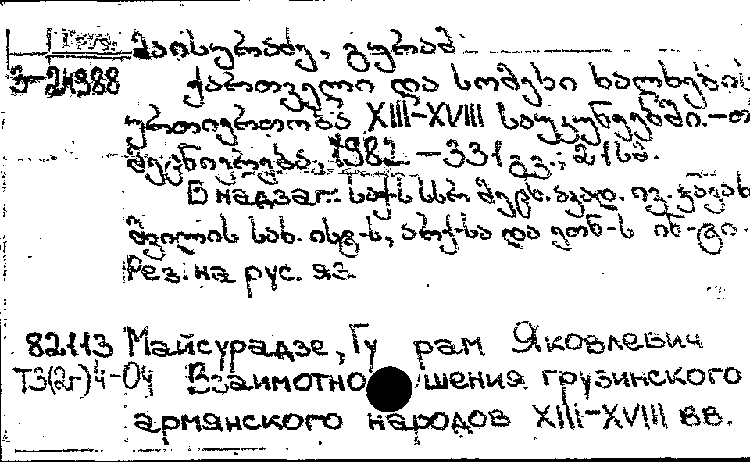 Груз.
მაისურაძე, გურამ
3-24988 ქართველი და სომეხი ხალხების
ურთიერთობა XIII-XVIII საუკუნეებში.-თ
მეცნიერება, 1982. - 331 გვ.; 21 სმ.
В надзаг.: საქ სსრ მეცნ. აკად. ივ. ჯავახ
შვილის სახ. ისტ-ს, არქ-სა და ეთნ-ს ინ-ტი.
Рез. на рус. яз.
82113 Майсурадзе, Гурам Яковлевич
Т3(2Г)4-04 Взаимоотношения грузинского
армянского народов XIII-XVIII вв.